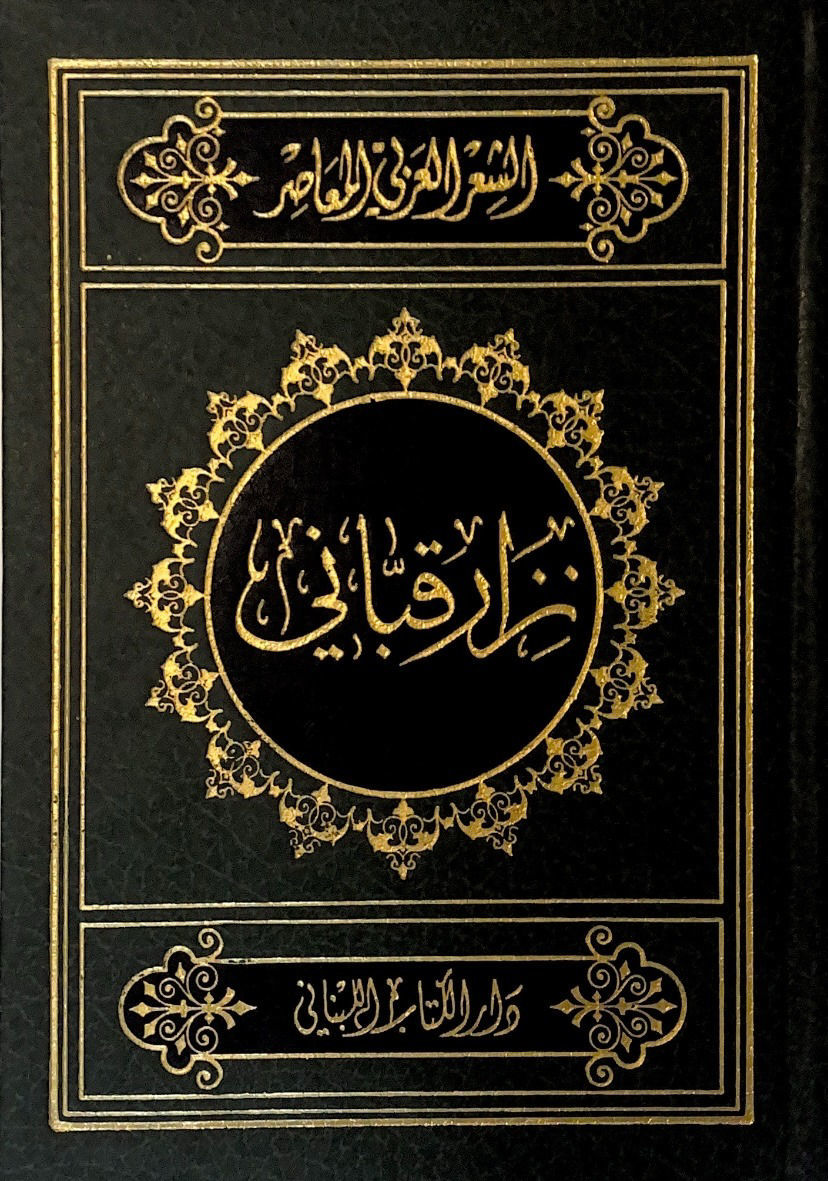 الشعر العربي المعاصر
نزار قباني
دار الكتاب اللبناني